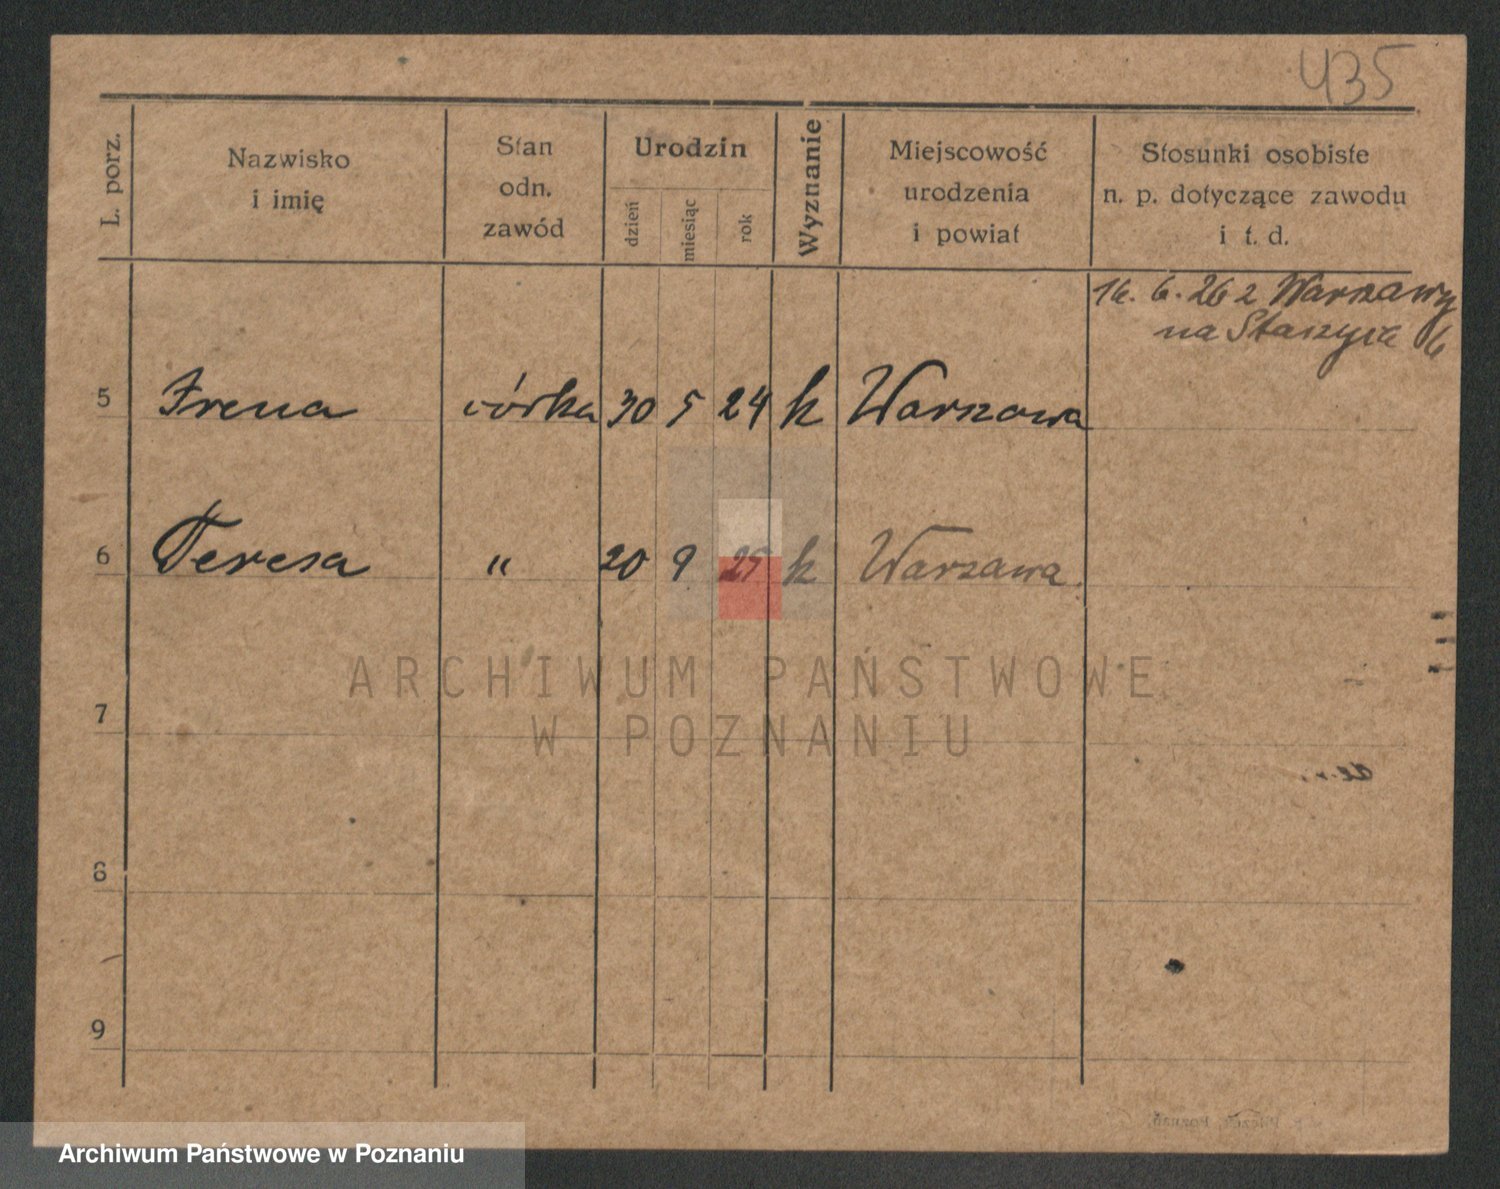 435
L. porz.
Nazwisko
i imię
Stan
odn.
zawód
Urodzin
dzień
miesiąc
rok
Wyznanie
Miejscowość
urodzenia
i powiat
Stosunki osobiste
n. p. dotyczące zawodu
i t. d.
16. 6. 26 z Warszawy
na Staszyca 16
5 Irena córka 30 5 24 k Warszawa
6 Teresa " 20 9 25 k Warszawa
ARCHIWUM PAŃSTWOWE
W POZNANIU
7
8
9
Archiwum Państwowe w Poznaniu